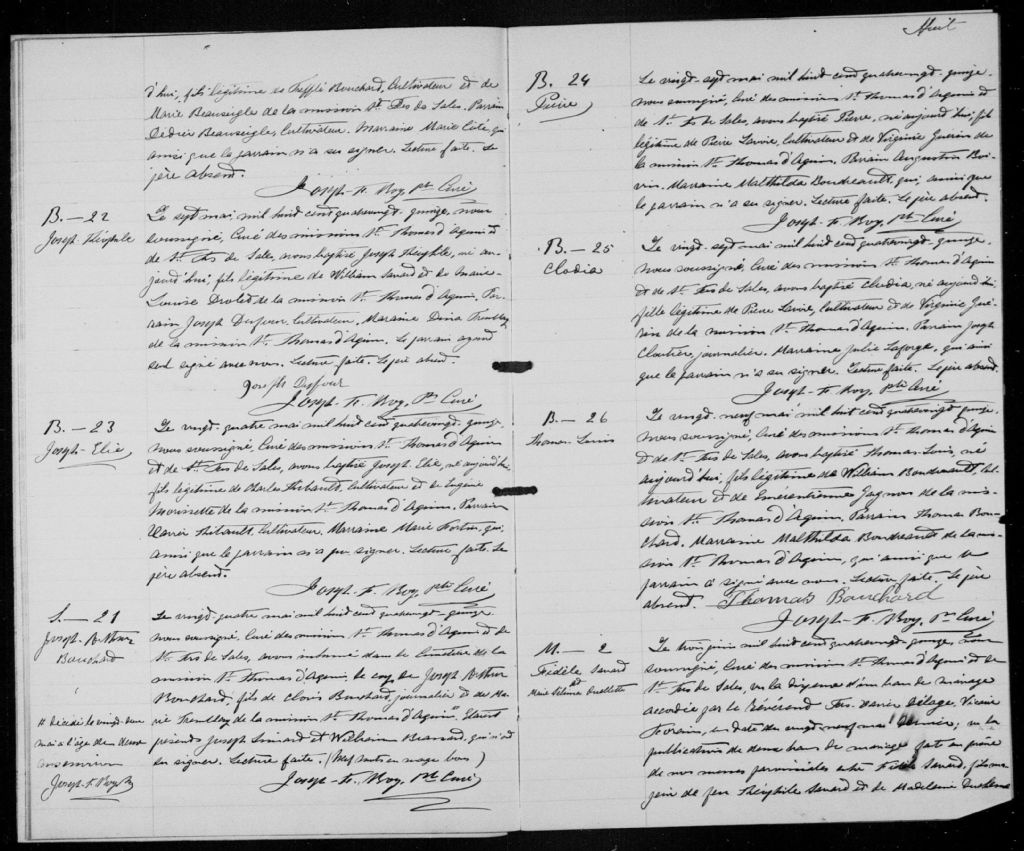 d'hui, fils légitime de Trefflé Bouchard, Cultivateur et de
Marie Beauseigle de la mission St. Frs de Sales. Parrain
Beauseigle, Cultivateur. Marraine Marie Côté, qui
ainsi que le parrain n'a su signer. Lecture faite. Le
père absent.
Joseph-F. Roy, Ptre Curé
B. — 22
Joseph Théophile
Le sept mai mil huit cent quatrevingt-quinze, nous
soussigné, Curé des missions St. Thomas d'Aquin et
de St. Frs de Sales, avons baptisé Joseph Théophile, né au-
jourd'hui, fils légitime de William Savard et de Marie-
Louise Drolet de la mission St. Thomas d'Aquin, Par-
rain Joseph Dufour, Cultivateur, Marraine Dina Tremblay
de la mission St. Thomas d'Aquin. Le parrain ayant
seul signé avec nous. Lecture faite. Le père absent.
Joseph Dufour
Joseph-F. Roy, Ptre Curé
B. — 23
Joseph-Elie
Le vingt-quatre mai mil huit cent quatrevingt-quinze
nous soussigné, Curé des missions St. Thomas d'Aquin
et de St. Frs de Sales, avons baptisé Joseph Elie, né aujourd'hui,
fils légitime de Charles Thibault, Cultivateur et de Eugénie
Morissette de la mission St. Thomas d'Aquin, Parrain
Xavier Thibault, Cultivateur, Marraine Marie Fortin, qui
ainsi que le parrain n'a pu signer. Lecture faite. Le
père absent.
Joseph-F. Roy, Ptre Curé
S. — 21
Joseph Arthur
Bouchard
Le vingt-quatre mai mil huit cent quatrevingt-quinze
nous soussigné, Curé des missions St. Thomas d'Aquin et de
St. Frs de Sales, avons inhumé dans le Cimetière de la
mission St. Thomas d'Aquin, le corps de Joseph Arthur
Bouchard, fils de Clovis Bouchard, journalier et de Ma-
rie Tremblay de la mission St. Thomas d'Aquin. Etaient
présents Joseph Simard et William Brassard, qui n'ont
su signer. Lecture faite. (Neuf mots en marge bons)
Joseph-F. Roy, Ptre Curé
# décédé le vingt-deux
mai à l'âge de deux
ans environ
Joseph-F. Roy P.
Huit
B. 24
Pierre
Le vingt-sept mai mil huit cent quatrevingt-quinze,
nous soussigné, Curé des missions St. Thomas d'Aquin et
de St. Frs de Sales, avons baptisé Pierre, né aujourd'hui, fils
légitime de Pierre Lavoie, Cultivateur et de Virginie Guérin de
la mission St. Thomas d'Aquin, Parrain Augustin Boi-
vin. Marraine Mathilda Boudreault, qui, ainsi que
le parrain n'a su signer. Lecture faite. Le père absent.
Joseph-F. Roy, Ptre Curé
B. — 25
Clodia
Le vingt-sept mai mil huit cent quatrevingt-quinze,
nous soussigné, Curé des missions St. Thomas d'Aquin
et de St. Frs de Sales, avons baptisé Clodia, née aujourd'hui,
fille légitime de Pierre Lavoie, Cultivateur et de Virginie Gué-
rin de la mission St. Thomas d'Aquin. Parrain Joseph
Cloutier, journalier. Marraine Julie Laforge, qui ainsi
que le parrain n'a su signer. Lecture faite. Le père absent.
Joseph-F. Roy, Ptre Curé
B. — 26
Thomas-Louis
Le vingt-neuf mai mil huit cent quatrevingt-quinze,
nous soussigné, Curé des missions St. Thomas d'Aquin
et de St. Frs de Sales, avons baptisé Thomas-Louis, né
aujourd'hui, fils légitime de William Boudreault, Cul-
tivateur et de Emerentienne Gagnon de la mis-
sion St. Thomas d'Aquin, Parrain Thomas Bou-
chard. Marraine Mathilda Boudreault de la mis-
sion St. Thomas d'Aquin, qui ainsi que le
parrain a signé avec nous. Lecture faite. Le père
absent. Thomas Bouchard
Joseph-F. Roy, Ptre Curé
M. — 2
Fidèle Savard
et
Marie Ouellette
Le trois juin mil huit cent quatrevingt-quinze, nous
soussigné, Curé des missions St. Thomas d'Aquin et de
St. Frs de Sales, vu la dispense d'un ban de mariage
accordée par le Révérend Frs. Xavier Délage, Vicaire
Forain, en date du vingt-neuf mai dernier; vu la
publication de deux bans de mariage faite au prône
de nos messes paroissiales entre Fidèle Savard, fils ma-
jeur de feu Théophile Savard et de Madeleine Duchesne